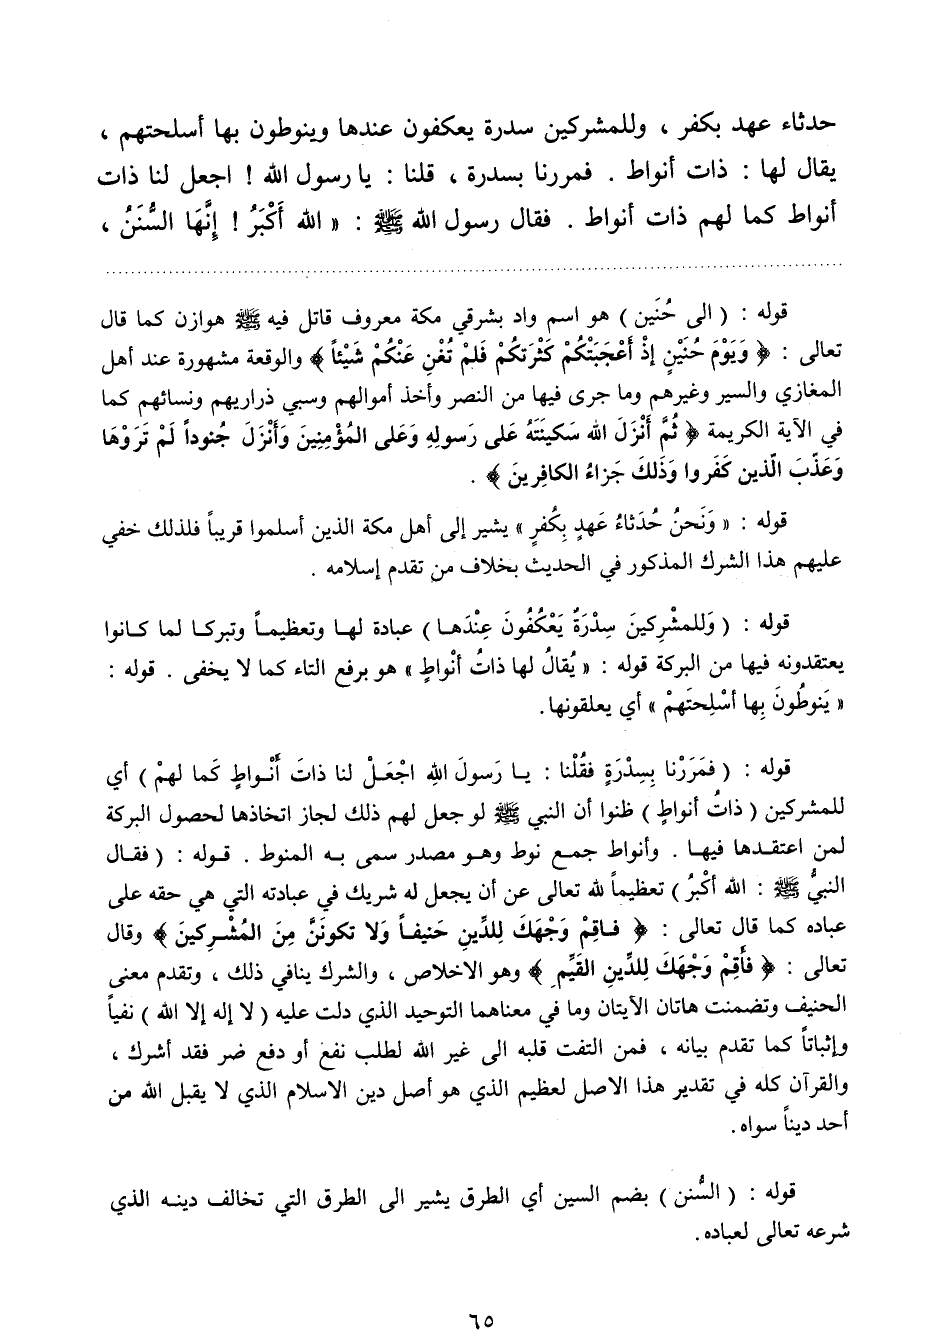 حدثاء عهد بكفر ، وللمشركين سدرة يعكفون عندها وينوطون بها أسلحتهم ،
يقال لها : ذات أنواط . فمررنا بسدرة ، قلنا : يا رسول الله ! اجعل لنا ذات
أنواط كما لهم ذات أنواط . فقال رسول الله ﷺ : « الله أَكْبَرُ ! إِنَّهَا السُّنَنُ ،
قوله : ( الى حُنَين ) هو اسم واد بشرقي مكة معروف قاتل فيه ﷺ هوازن كما قال
تعالى : ﴿ وَيَوْمَ حُنَيْنٍ إذْ أَعْجَبَتْكُمْ كَثْرَتكُمْ فَلمْ تُغْنِ عَنْكُمْ شَيْئاً ﴾ والوقعة مشهورة عند أهل
المغازي والسير وغيرهم وما جرى فيها من النصر وأخذ أموالهم وسبي ذراريهم ونسائهم كما
في الآية الكريمة ﴿ ثُمَّ أَنْزَلَ الله سَكينَتَهُ عَلى رَسولِهِ وَعَلى المُؤْمِنِينَ وَأَنْزَلَ جُنوداً لَمْ تَرَوْهَا
وَعَذّبَ الّذين كَفَروا وَذَلكَ جَزاءُ الكافِرينَ ﴾ .
قوله : « وَنَحنُ حُدَثاءُ عَهدٍ بِكُفرٍ » يشير إلى أهل مكة الذين أسلموا قريباً فلذلك خفي
عليهم هذا الشرك المذكور في الحديث بخلاف من تقدم إسلامه .
قوله : ( وَللمشْرِكينَ سِدْرَةٌ يَعْكُفُونَ عِنْدَهـا ) عبادة لهـا وتعظيمـاً وتبركـا لما كـانوا
يعتقدونه فيها من البركة قوله : « يُقالُ لها ذاتُ أنْواطٍ » هو برفع التاء كما لا يخفى . قوله :
« يَنوطُونَ بِها أسْلِحتَهمْ » أي يعلقونها.
قوله : ( فمَرَرْنا بِسِدْرَةٍ فقُلْنا : يـا رَسولَ اللهِ اجْعَـلْ لنا ذاتَ أَنْـواطٍ كَما لهمْ ) أي
للمشركين ( ذاتُ أنواطٍ ) ظنوا أن النبي ﷺ لو جعل لهم ذلك لجاز اتخاذها لحصول البركة
لمن اعتقـدها فيهـا . وأنواط جمـع نوط وهـو مصدر سمى بـه المنوط . قـوله : ( فقـال
النبيُّ ﷺ : الله أكْبرُ ) تعظيماً لله تعالى عن أن يجعل له شريك في عبادته التي هي حقه على
عباده كما قال تعالى : ﴿ فـاقِمْ وَجْهَكَ لِلدِّينِ حَنيفـاً وَلا تكونَنَّ مِنَ المُشْـرِكينَ ﴾ وقال
تعالى : ﴿ فأَقِمْ وَجْهَكَ لِلدِّينِ القَيِّمِ ﴾ وهو الاخلاص ، والشرك ينافي ذلك ، وتقدم معنى
الحنيف وتضمنت هاتان الآيتان وما في معناهما التوحيد الذي دلت عليه ( لا إله إلا الله ) نفياً
وإثباتاً كما تقدم بيانه ، فمن التفت قلبه الى غير الله لطلب نفع أو دفع ضر فقد أشرك ،
والقرآن كله في تقدير هذا الاصل لعظيم الذي هو أصل دين الاسلام الذي لا يقبل الله من
أحد ديناً سواه.
قوله : ( السُّنن ) بضم السين أي الطرق يشير الى الطرق التي تخالف دينـه الذي
شرعه تعالى لعباده.
٦٥